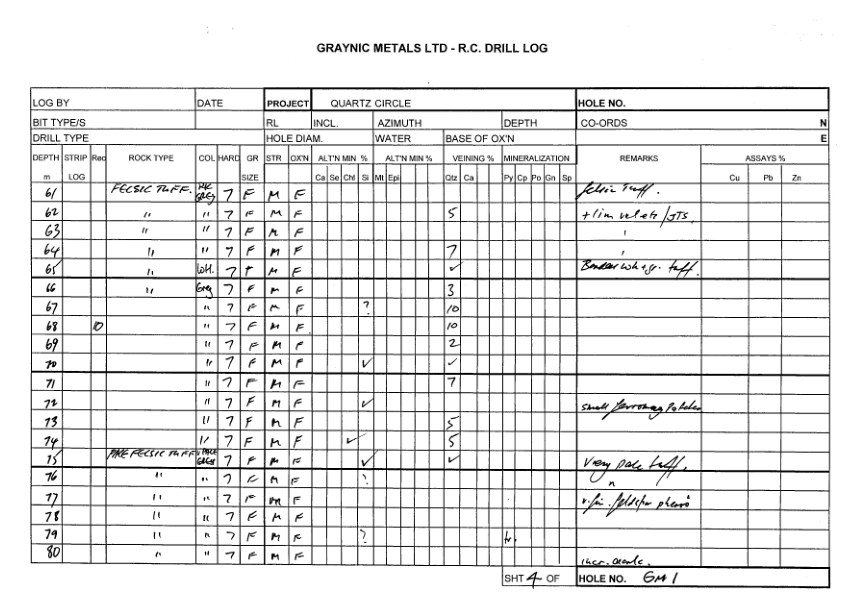 GRAYNIC METALS LTD - R.C. DRILL LOG
LOG BY DATE PROJECT QUARTZ CIRCLE HOLE NO.
BIT TYPE/S RL INCL. AZIMUTH DEPTH CO-ORDS N
DRILL TYPE HOLE DIAM. WATER BASE OF OX'N E
DEPTH STRIP Rec ROCK TYPE COL HARD GR STR OX'N ALT'N MIN % ALT'N MIN % VEINING % MINERALIZATION REMARKS ASSAYS %
m LOG SIZE Ca Se Chl Si Mt Epi Qtz Ca Py Cp Po Gn Sp Cu Pb Zn
61 FELSIC TUFF. GREY 7 F M F felsic tuff.
62 " " 7 F M F 5 + lim velets/JTS.
63 " " 7 F M F "
64 " " 7 F M F 7 "
65 " WH. 7 F M F ✓ tuff.
66 " Grey 7 F M F 3
67 " 7 F M F ? 10
68 10 " 7 F M F 10
69 " 7 F M F 2
70 " 7 F M F ✓ ✓
71 " 7 F M F 7
72 " 7 F M F ✓ small patches
73 " 7 F M F 5
74 " 7 F M F ✓ 5
75 PALE FELSIC TUFF PALE GREY 7 F M F ✓ ✓ very pale tuff.
76 " " 7 F M F ? "
77 " " 7 F M F v. fin. feldspar
78 " " 7 F M F
79 " " 7 F M F ? tr.
80 " " 7 F M F incr.
SHT 4 OF HOLE NO. GM 1